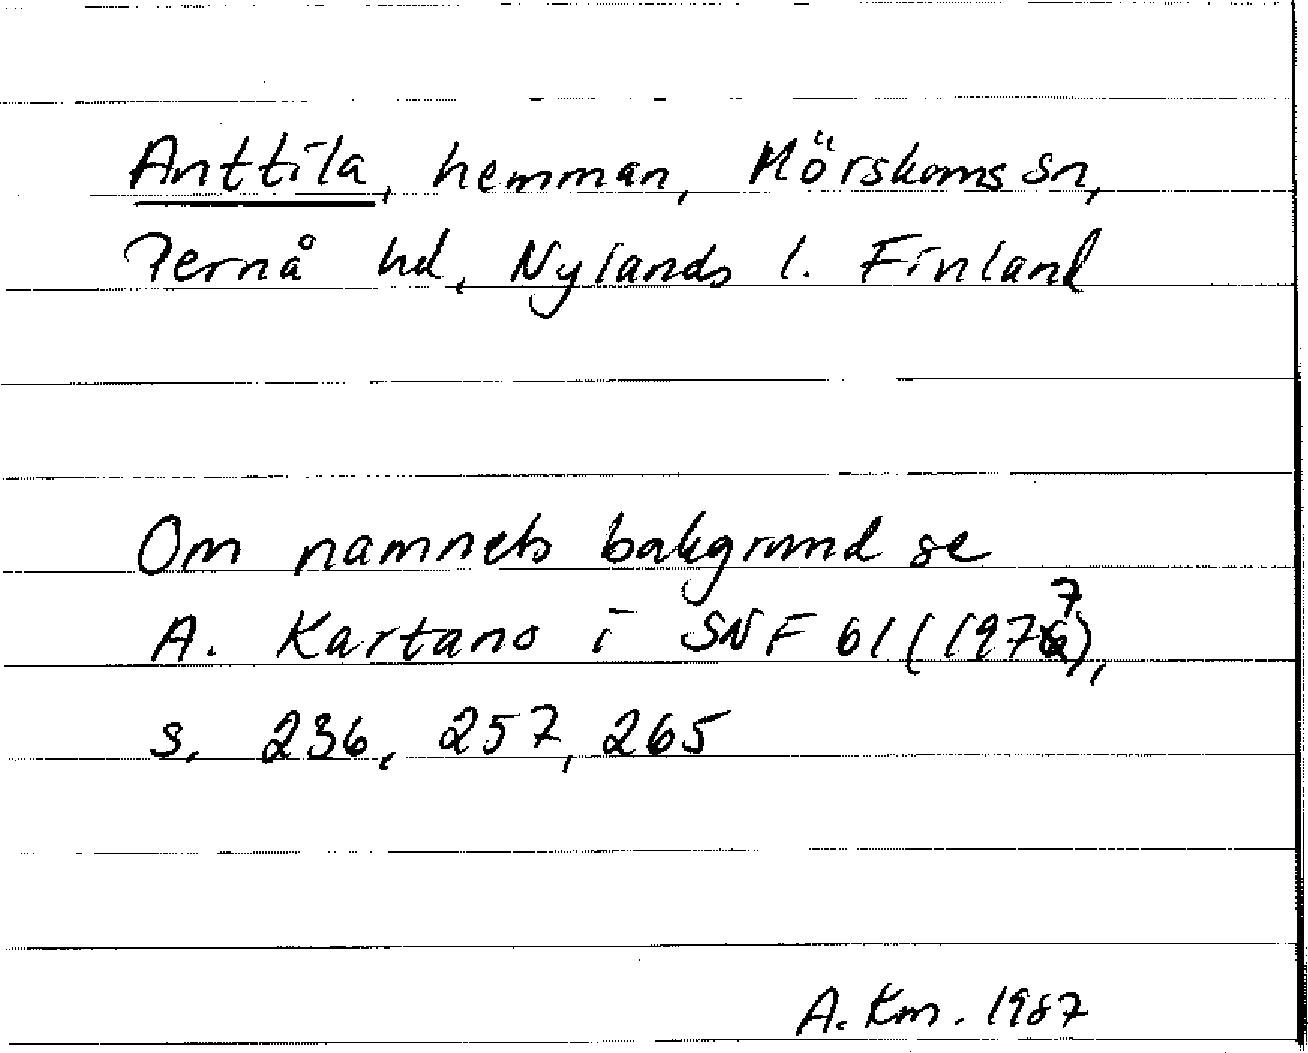 Anttila, hemman, Mörskoms sn,
Pernå hd, Nylands l. Finland
Om namnets bakgrund se
A. Kartano i SNF 61 (1977),
s. 236, 257, 265
A. Km. 1987